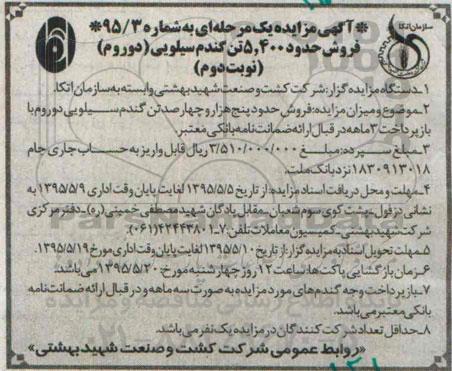 سازمان اتکا
* آگهی مزایده یک مرحله‌ای به شماره ۹۵/۳ *
فروش حدود ۵,۴۰۰ تن گندم سیلویی (دوروم)
(نوبت دوم)
۱ـ دستگاه مزایده گزار: شرکت کشت و صنعت شهید بهشتی وابسته به سازمان اتکا.
۲ـ موضوع و میزان مزایده: فروش حدود پنج هزار و چهارصد تن گندم سیلویی دوروم با
بازپرداخت ۳ ماهه در قبال ارائه ضمانت نامه بانکی معتبر.
۳ـ مبلغ سپرده: مبلغ ۳/۵۱۰/۰۰۰/۰۰۰ ریال قابل واریز به حساب جاری جام
۱۸۳۰۹۱۳۰۱۸ نزد بانک ملت.
۴ـ مهلت و محل دریافت اسناد مزایده: از تاریخ ۱۳۹۵/۵/۵ لغایت پایان وقت اداری ۱۳۹۵/۵/۹ به
نشانی دزفول ـ پشت کوی سوم شعبان ـ مقابل پادگان شهید مصطفی خمینی (ره) ـ دفتر مرکزی
شرکت شهید بهشتی ـ کمیسیون معاملات تلفن: ۷ـ۴۲۴۴۳۸۰۱ (۰۶۱)
۵ـ مهلت تحویل اسناد به مزایده گزار: از تاریخ ۱۳۹۵/۵/۱۰ لغایت پایان وقت اداری مورخ ۱۳۹۵/۵/۱۹.
۶ـ زمان بازگشایی پاکت‌ها: ساعت ۱۲ روز چهارشنبه مورخ ۱۳۹۵/۵/۲۰ می‌باشد.
۷ـ بازپرداخت وجه گندم‌های مورد مزایده به صورت سه ماهه و در قبال ارائه ضمانت نامه
بانکی معتبر می‌باشد.
۸ـ حداقل تعداد شرکت کنندگان در مزایده یک نفر می‌باشد.
«روابط عمومی شرکت کشت و صنعت شهید بهشتی»